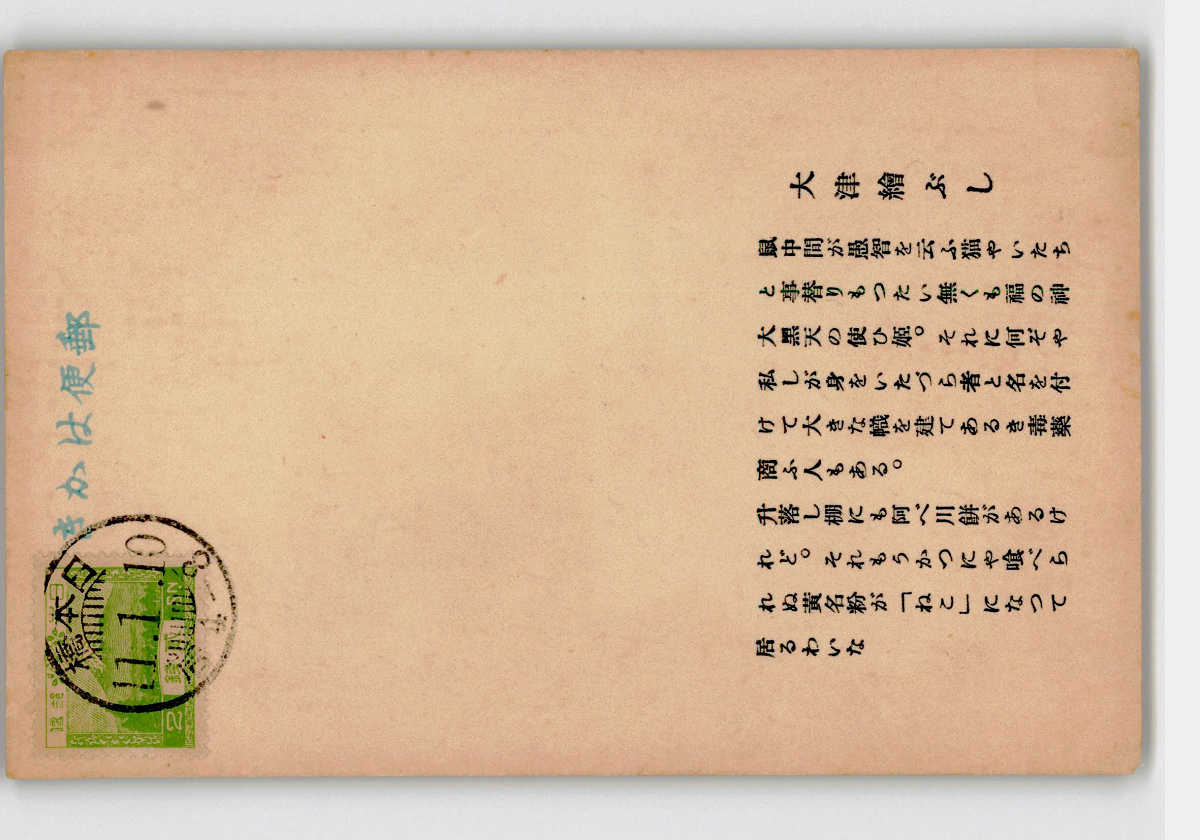 大津繪ぶし
鼠中間が愚智を云ふ猫やいたち
と事替りもつたい無くも福の神
大黑天の使ひ姫。それに何ぞや
私しが身をいたづら者と名を付
けて大きな幟を建てあるき毒藥
商ふ人もある。
升落し棚にも阿べ川餅があるけ
れど。それもうかつにや喰べら
れぬ黄名粉が「ねこ」になつて
居るわいな
きかは便郵
日本橋
11.1.10
2